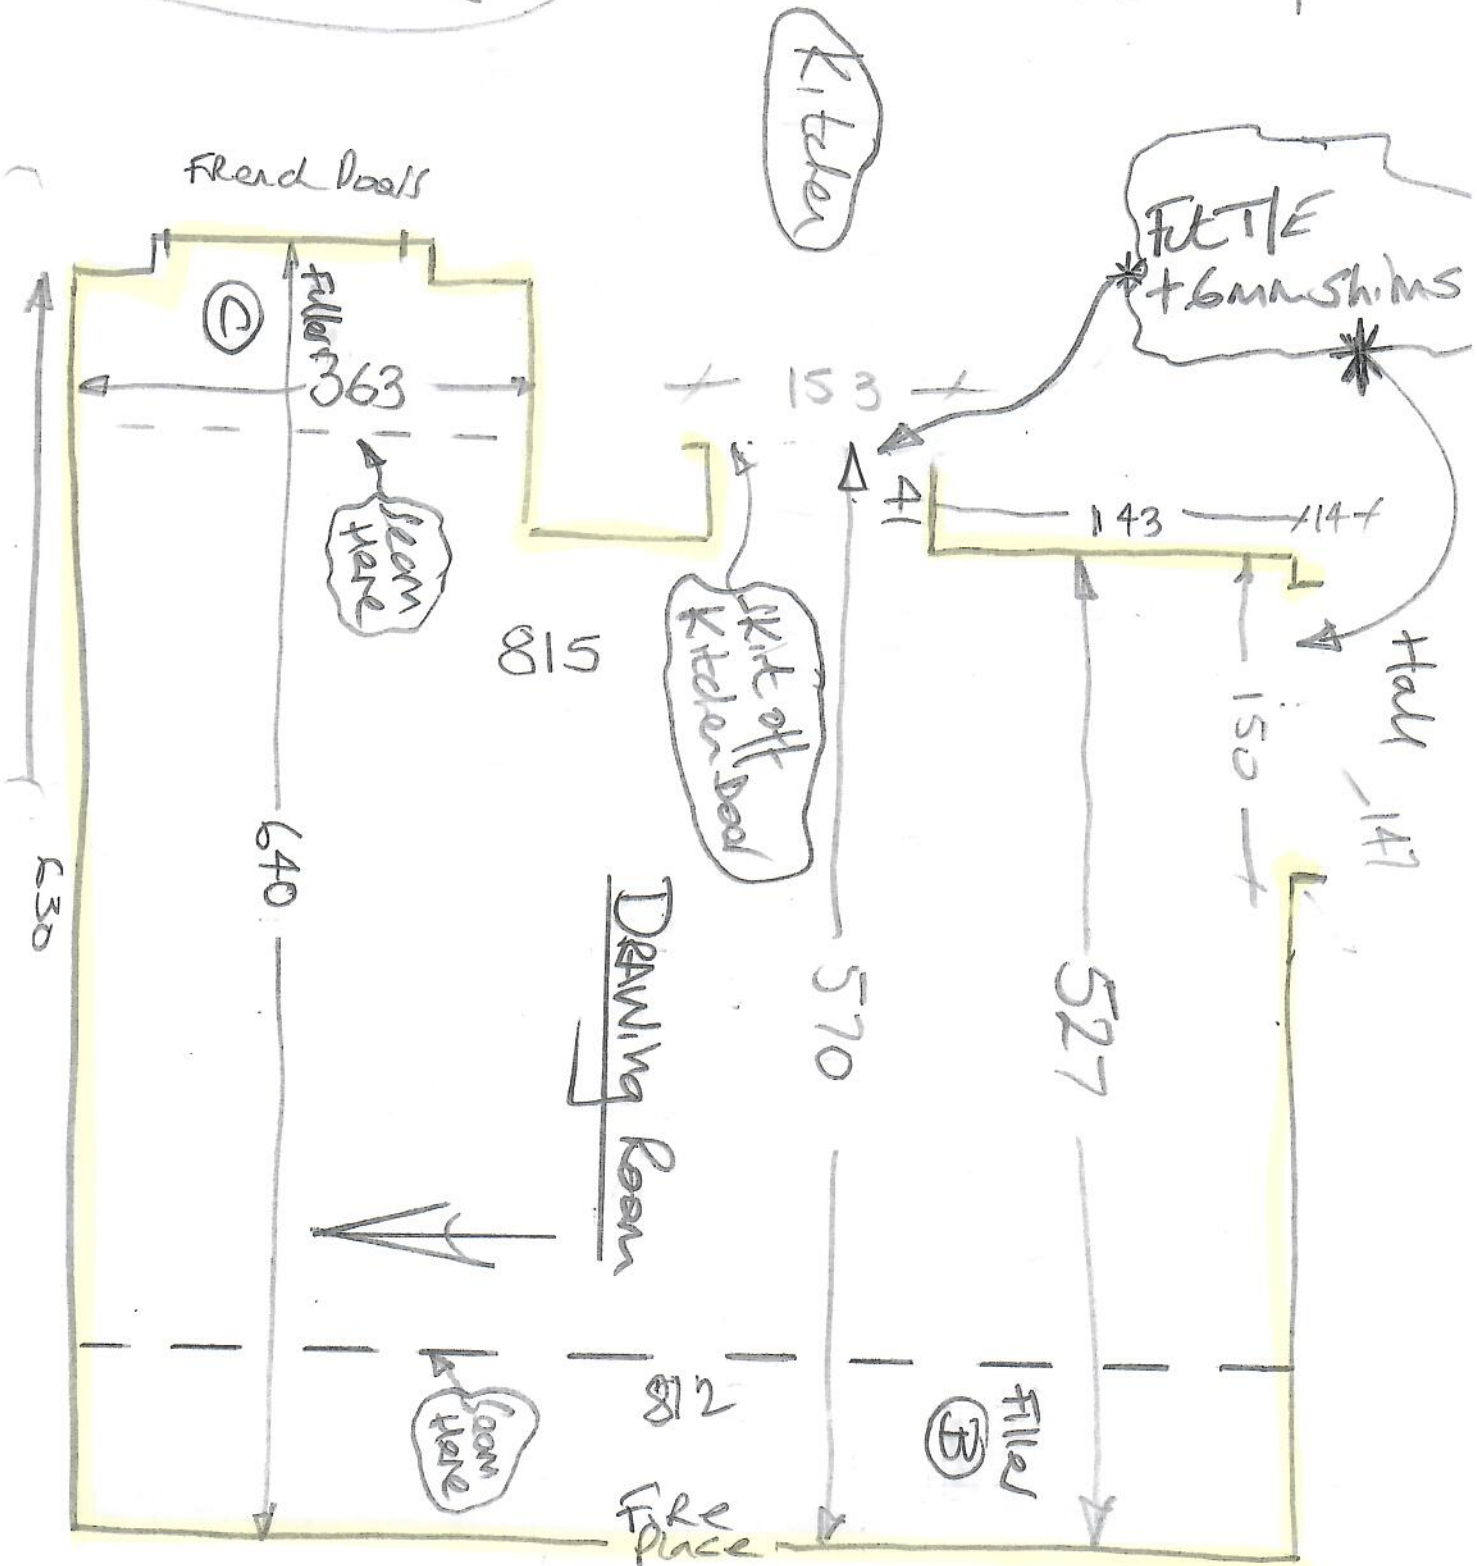 Kitchen
French Doors
Fit T/E
+ 6mm shims
C
Filler
363
153
41
143
14
Seam
Here
815
Skirt off
Kitchen Door
Hall
150
147
640
630
Drawing Room
570
527
812
Seam
Here
Filler
B
Fire
place